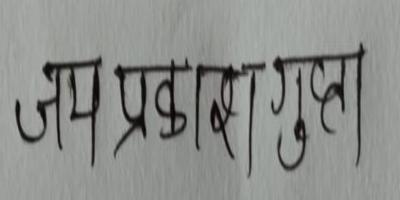 जय प्रकाश गुप्ता